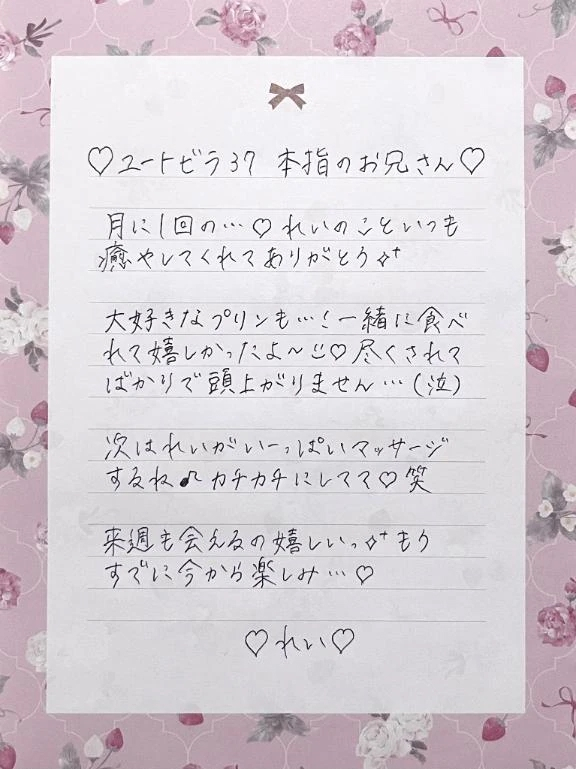 ♡ユートビラ37 本指のお兄さん♡
月に1回の…♡れいのこといつも
癒やしてくれてありがとう✧⁺
大好きなプリンも…!一緒に食べ
れて嬉しかったよ〜☺♡尽くされて
ばかりで頭上がりません…(泣)
次はれいがいーっぱいマッサージ
するね♪カチカチにしてママ♡笑
来週も会えるの嬉しいっ✧⁺もう
すでに今から楽しみ…♡
♡れい♡